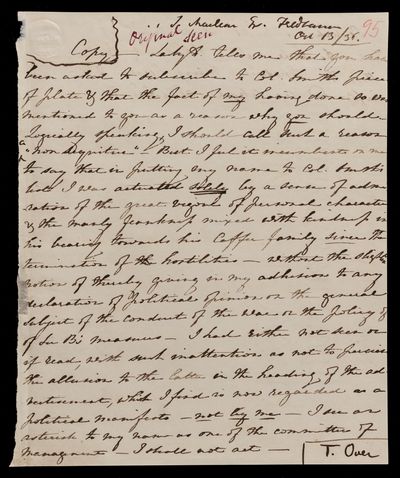 T. Maclear Esq. Feldhausen
Original seen
Oct 13/36. 95
Copy — Lady H tells me that you have
been asked to subscribe to Col. Smith's piece
of plate & that the fact of my having done so was
mentioned to you as a reason why you should.
Logically speaking, I should call such a reason
a "non sequitur" — But I feel it incumbent on me
to say that in putting my name to Col. Smith's
I was actuated solely by a sense of admi-
ration of the great vigour of personal character
& the manly frankness mixed with kindness in
his bearing towards his Caffre family since the
termination of the hostilities — without the slightest
notion of thereby giving in my adhesion to any
declaration of political opinion on the general
subject of the conduct of the war or the policy of
of Sir B's measures — I had either not seen or
if read, with such inattention as not to perceive
the allusion to the latter in the heading of the ad
vertisement, which I find is now regarded as a
political manifesto — not by me — I see an
asterisk to my name as one of the committee of
management — I shall not act —
T. Over